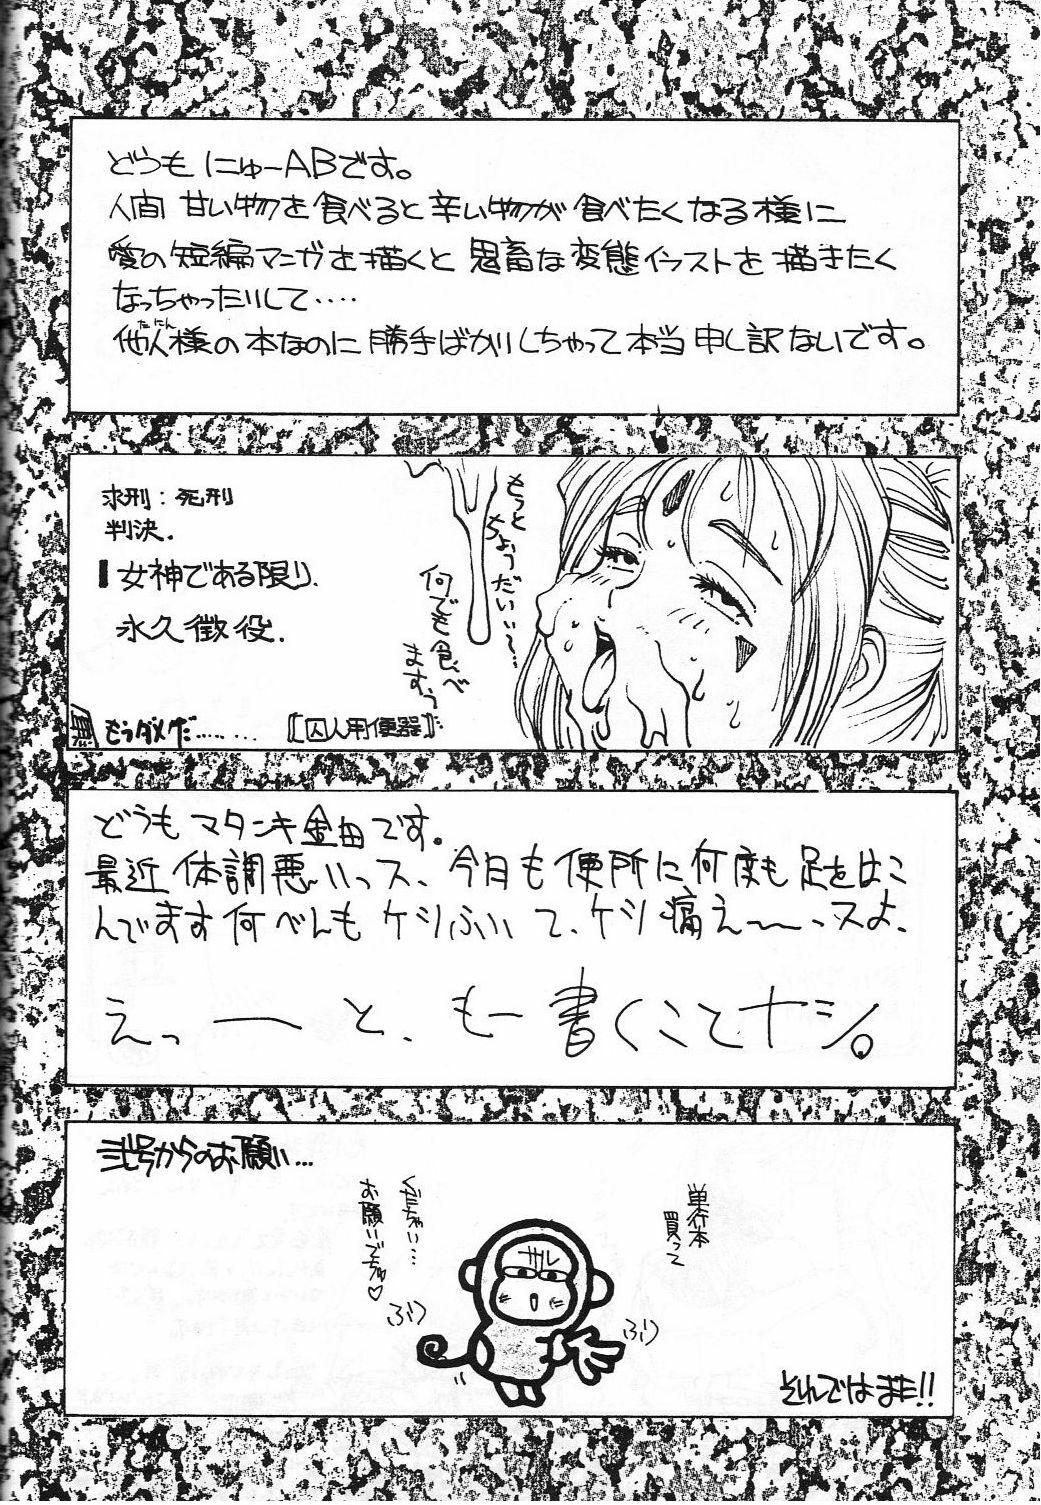 どうも にゅーABです。
人間 甘い物を食べると辛い物が食べたくなる様に
愛の短編マンガを描くと 鬼畜な変態イラストを描きたく
なっちゃったりして‥‥
他人様の本なのに勝手ばかりしちゃって本当申し訳ないです。
たにん
求刑：死刑
判決.
女神である限り.
永久懲役.
もっと
ちょうだいい〜…
何でも食べ
ますっ
もうダメだ……‥
【囚人用便器】
どうもマタンキ金田です。
最近体調悪いっス、今日も便所に何度も足をはこ
んでます何べんもケツふいて、ケツ痛え〜〜っスよ、
えっーと、もー書くことナシ。
弐号からのお願い…
単行本
買って
くだちゃい…
お願いでちゅ♡
サル
ふり
ふり
それではまた!!